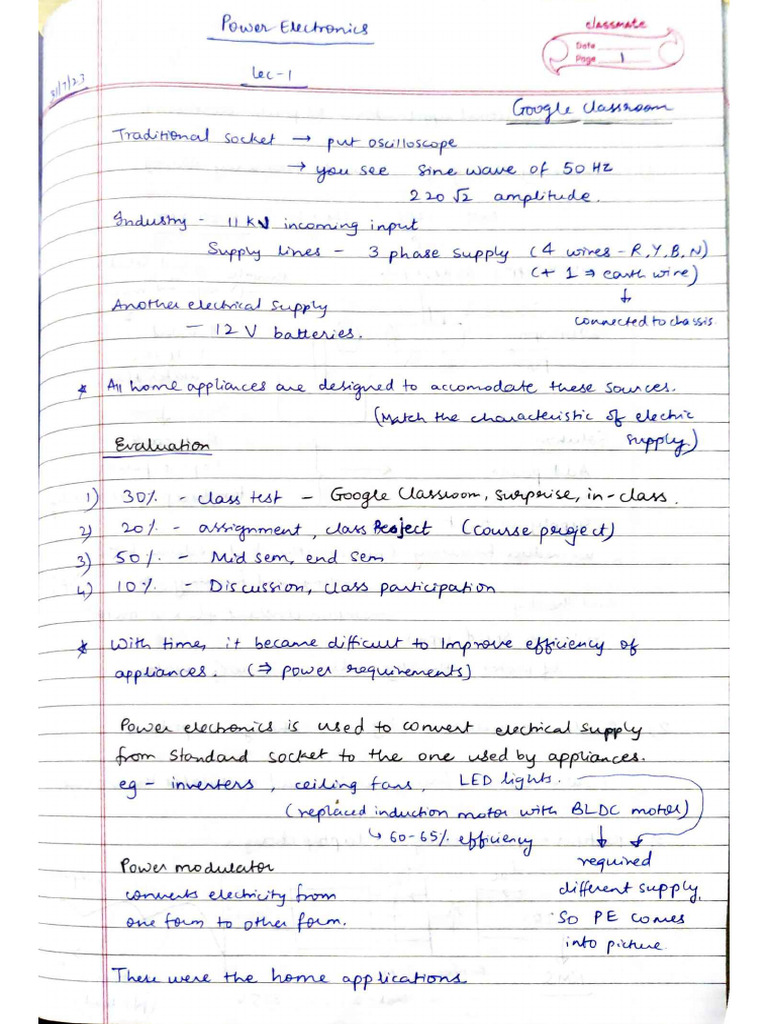 Power Electronics
classmate
Date
Page 1
31/7/23
Lec-1
Google Classroom
Traditional socket → put oscilloscope
→ you see sine wave of 50 Hz
220√2 amplitude.
Industry - 11 kV incoming input
Supply lines - 3 phase supply (4 wires - R, Y, B, N)
(+ 1 ⇒ earth wire)
↓
connected to chassis.
Another electrical supply
- 12 V batteries.
* All home appliances are designed to accomodate these sources.
(Match the characteristic of electric
supply)
Evaluation
1) 30% - class test - Google Classroom, surprise, in-class.
2) 20% - assignment, class Project (course project)
3) 50% - Mid sem, end sem
4) 10% - Discussion, class participation
* With time, it became difficult to improve efficiency of
appliances. (⇒ power requirements)
Power electronics is used to convert electrical supply
from standard socket to the one used by appliances.
eg - inverters, ceiling fans, LED lights.
(replaced induction motor with BLDC motor)
↳ 60-65% efficiency ↓ ↓
Power modulator
converts electricity from
one form to other form.
required
different supply,
so PE comes
into picture
These were the home applications.